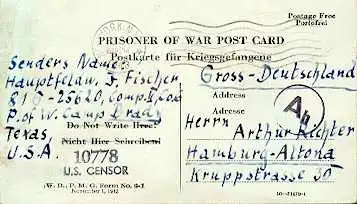 Postage Free
Portofrei
PRISONER OF WAR POST CARD
Postkarte für Kriegsgefangene
Senders Name:
Hauptfelaw. F. Fischer
81G-25620, Comp.
P.of W. Camp Brady
Texas
U.S.A.
Do Not Write Here!
Nicht Hier Schreiben!
10778
U.S. CENSOR
W. D., P. M. G. Form No. 6-1
November 1, 1942
Gross-Deutschland
Address
Adresse
Herrn Arthur Richter
Hamburg-Altona
Kruppstrasse 30